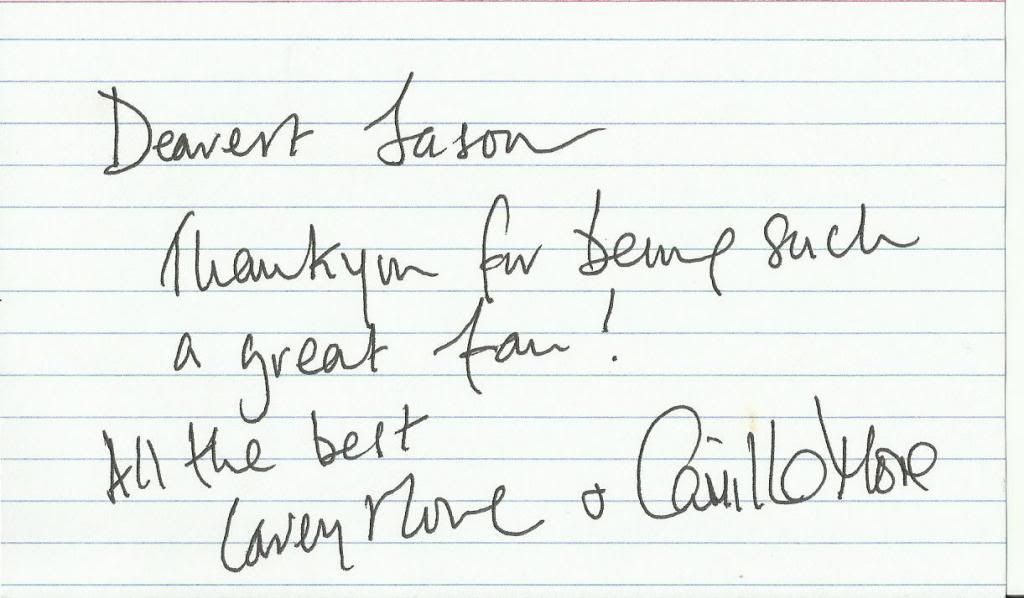 Dearest Jason
Thankyou for being such
a great fan!
All the best
Carey More & Camilla More